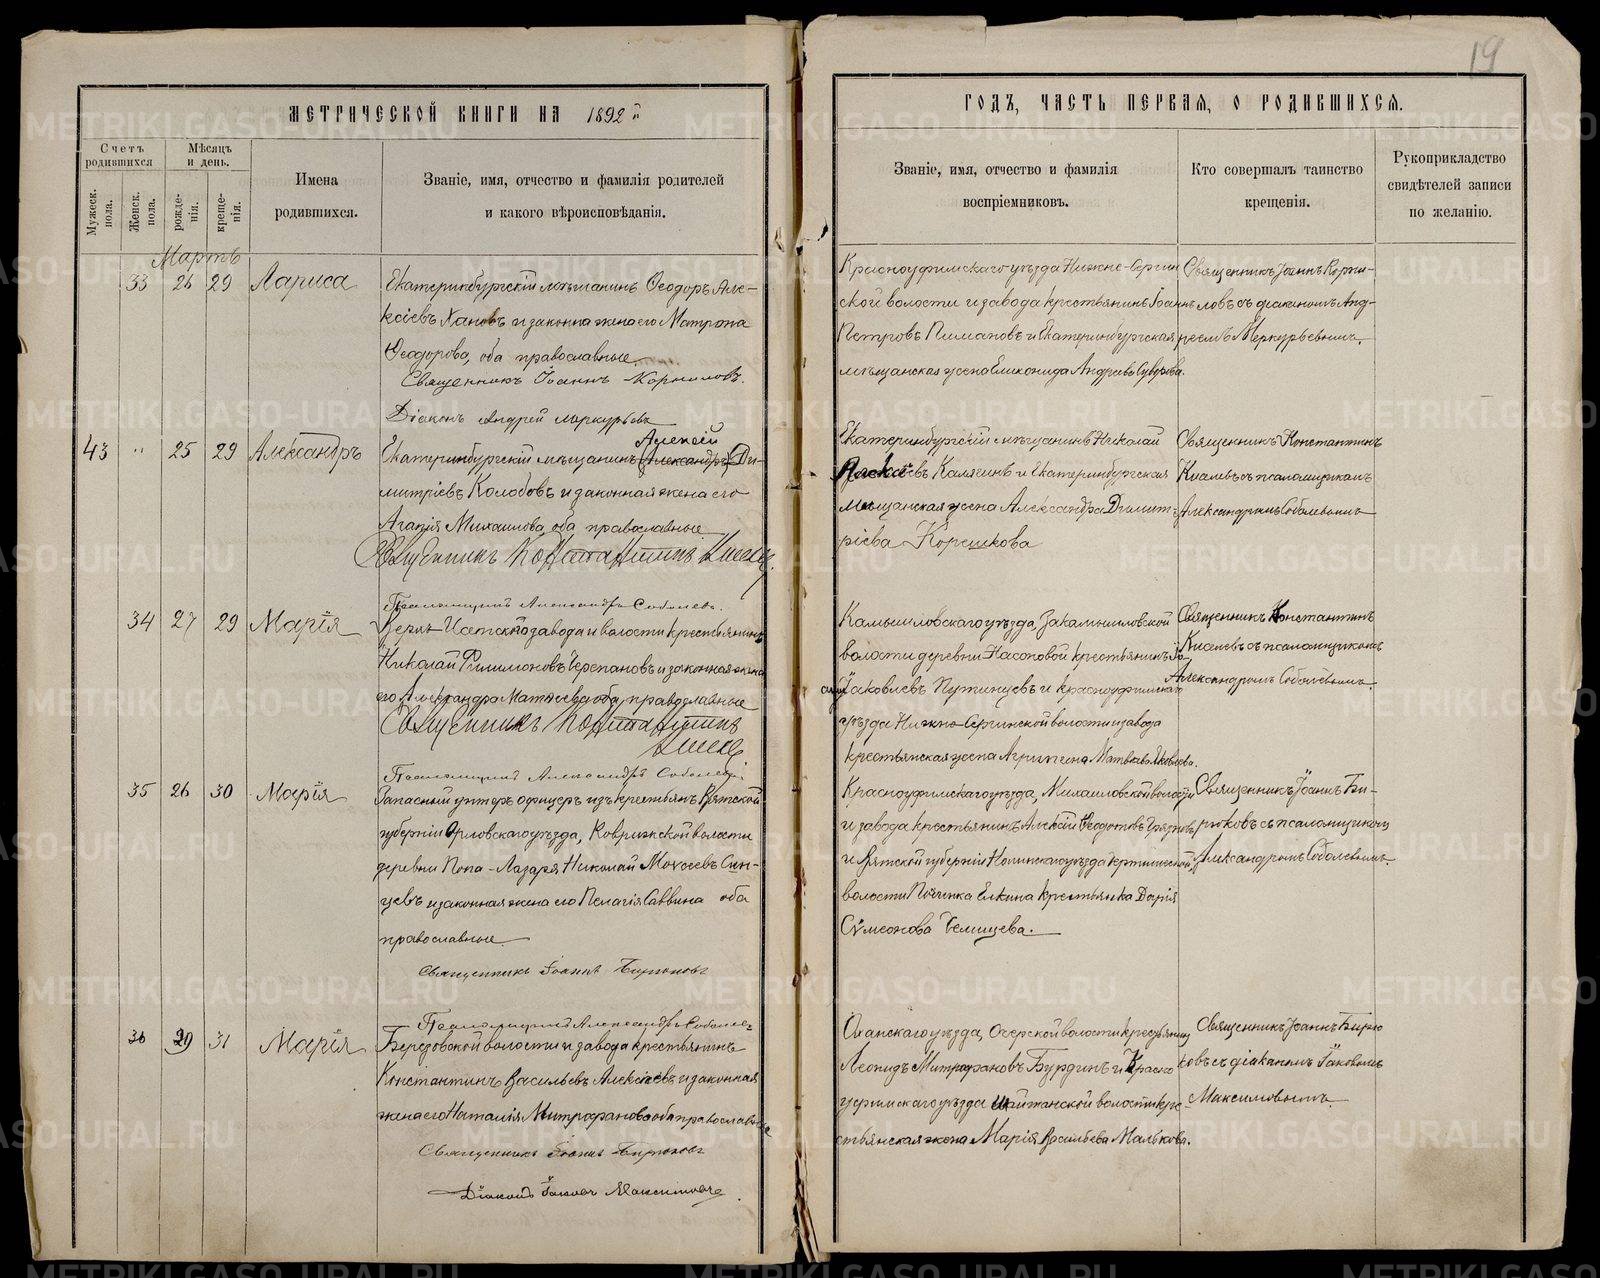 19
МЕТРИЧЕСКОЙ КНИГИ НА 1892 й
ГОДЪ, ЧАСТЬ ПЕРВАЯ, О РОДИВШИХСЯ.
Счетъ родившихся
Мужеск. пола.
Женск. пола.
Мѣсяцъ и день.
рожде-нія.
креще-нія.
Имена
родившихся.
Званіе, имя, отчество и фамилія родителей
и какого вѣроисповѣданія.
Званіе, имя, отчество и фамилія
воспріемниковъ.
Кто совершалъ таинство
крещенія.
Рукоприкладство
свидѣтелей записи
по желанію.
Мартъ
33 26 29 Лариса
Екатеринбургскій мѣщанинъ Ѳеодоръ Але-
ксіевъ Хановъ и законна жена его Матрона
Ѳеодорова, оба православные
Священникъ Іоаннъ Корниловъ.
Діаконъ Андрей Меркурьевъ
Красноуфимскаго уѣзда Нижне-Сергин
ской волости и завода крестьянинъ Іоаннъ
Петровъ Пимановъ и Екатеринбургская
мѣщанская жена Еликонида Андреева Суворова.
Священникъ Іоаннъ Корни-
ловъ съ діакономъ Анд-
реемъ Меркурьевымъ.
43 " 25 29 Александръ
Алексій
Екатеринбургскій мѣщанинъ (Александръ) Ди-
митріевъ Колобовъ и законная жена его
Агапія Михаилова, оба православные
Священникъ Константинъ
Псаломщикъ Александръ Соболевъ.
Екатеринбургскій мѣщанинъ Николай
Алексіевъ Калягинъ и Екатеринбургская
мѣщанская жена Александра Димит-
ріева Корешкова
Священникъ Константинъ
съ псаломщикомъ
Александромъ Соболевымъ
34 27 29 Марія
Верхъ-Исетского завода и волости крестьянинъ
Николай Филимоновъ Черепановъ и законная жена
его Александра Матѳеева оба православные
Священникъ Константинъ
Псаломщикъ Александръ Соболевъ
Камышловскаго уѣзда, Закамышловской
волости деревни Насоновой крестьянинъ
Іаковлевъ Путинцевъ и Красноуфимскаго
уѣзда Нижно-Сергинской волости и завода
крестьянская жена Агрипина Матвѣева Яковлева.
Священникъ Константинъ
Киселевъ съ псаломщикомъ
Александромъ Соболевымъ.
35 26 30 Марія
Запасный унтеръ офицеръ изъ крестьянъ Вятской
губерніи Орловскаго уѣзда, Коврижской волости
деревни Попа-Лазаря Николай Моѵсеевъ Син-
цевъ и законная жена его Пелагія Саввина оба
православные.
Священникъ Іоаннъ Бирюковъ
Псаломщикъ Александръ Соболевъ
Красноуфимскаго уѣзда, Михаиловской волости
и завода крестьянинъ Алексій Ѳедотовъ Грязновъ
и Вятской губерніи Нолинскаго уѣзда
волости Починка Елкина крестьянка Дарія
Сѵмеонова Чемицева.
Священникъ Іоаннъ Би-
рюковъ съ псаломщикомъ
Александромъ Соболевымъ.
36 29 31 Марія
Березовской волости и завода крестьянинъ
Константинъ Васильевъ Алексѣевъ и законная
жена его Наталія Митрофанова оба православные
Священникъ Іоаннъ Бирюковъ
Діаконъ Іаковъ Максимовъ.
Оханскаго уѣзда, Очерской волости крестьянинъ
Леонидъ Митрофановъ Бурдинъ и Красно
уфимскаго уѣзда Шайтанской волости кре-
стьянская жена Марія Васильева Малькова.
Священникъ Іоаннъ Бирю
ковъ съ діакономъ Іаковомъ
Максимовымъ.
METRIKI.GASO-URAL.RU